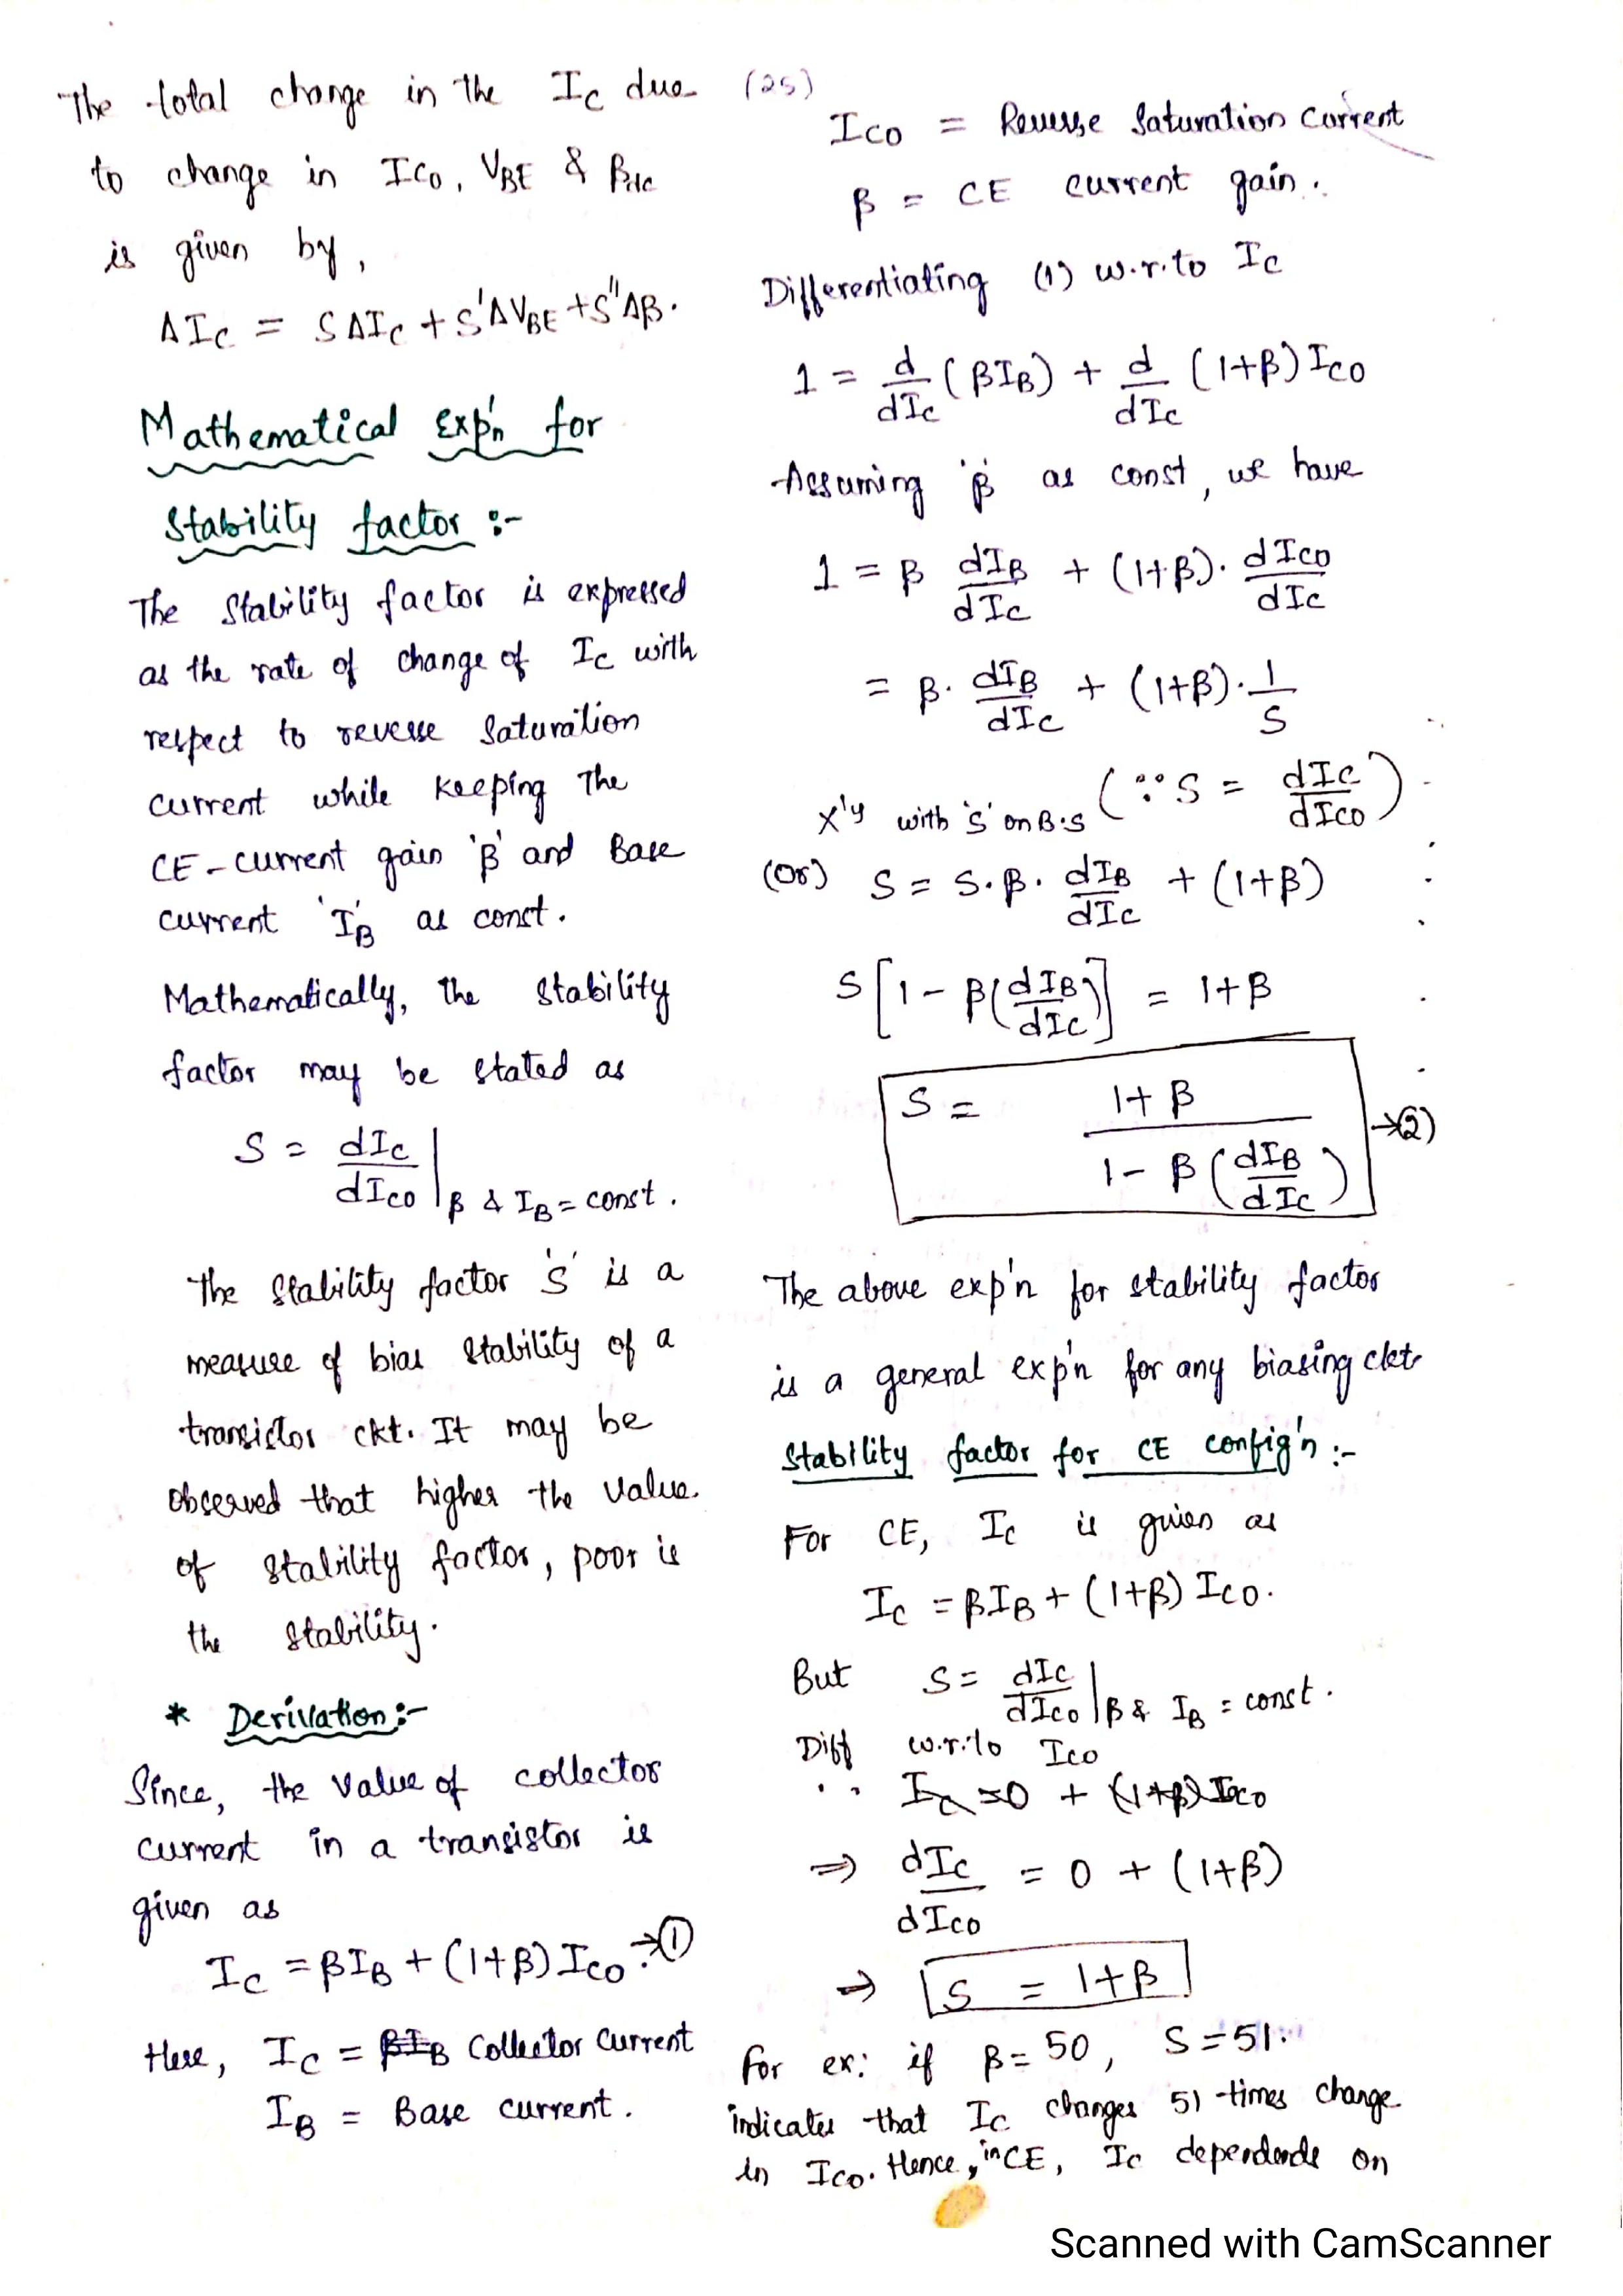 The total change in the IC due
to change in ICO, VBE & βdc
is given by,
ΔIC = SΔIC + S'ΔVBE + S''Δβ.
Mathematical Exp'n for
Stability factor :-
The Stability factor is expressed
as the rate of change of IC with
respect to reverse Saturation
current while keeping the
CE-current gain 'β' and Base
current 'IB' as const.
Mathematically, the stability
factor may be stated as
S = dIC/dICO | β & IB = const.
The stability factor 'S' is a
measure of bias stability of a
transistor ckt. It may be
observed that higher the value
of stability factor, poor is
the stability.
* Derivation :-
Since, the value of collector
current in a transistor is
given as
IC = βIB + (1+β) ICO →①
Here, IC = Collector Current
IB = Base current.
(25)
ICO = Reverse Saturation Current
β = CE current gain.
Differentiating (1) w.r.to IC
1 = d/dIC (βIB) + d/dIC (1+β) ICO
Assuming 'β' as const, we have
1 = β dIB/dIC + (1+β). dICO/dIC
= β. dIB/dIC + (1+β). 1/S
(∵ S = dIC/dICO)
x'y with 'S' on B.S
(or) S = S.β. dIB/dIC + (1+β)
S[1 - β(dIB/dIC)] = 1+β
S = 1+β / 1 - β(dIB/dIC) →(2)
The above exp'n for stability factor
is a general exp'n for any biasing ckt
Stability factor for CE config'n :-
For CE, IC is given as
IC = βIB + (1+β) ICO.
But S = dIC/dICO | β & IB = const.
Diff w.r.to ICO
∴ IC = 0 + (1+β) ICO
⇒ dIC/dICO = 0 + (1+β)
⇒ S = 1+β
For ex: if β = 50, S = 51.
indicates that IC changes 51 times change
in ICO. Hence, in CE, IC dependends on
Scanned with CamScanner